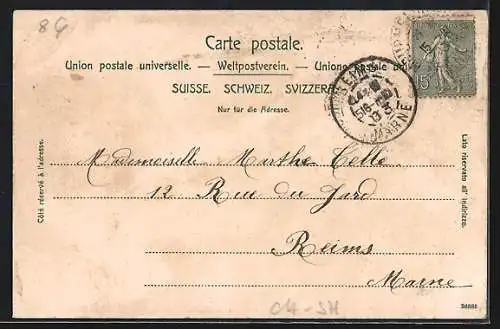 8G
Carte postale.
Union postale universelle. — Weltpostverein. — Unione postale
SUISSE. SCHWEIZ. SVIZZERA
Nur für die Adresse.
15
MARNE
Côté réservé à l'adresse.
Lato riservato all' indirizzo.
Mademoiselle Marthe Colle
12 Rue du Jard
Reims
Marne